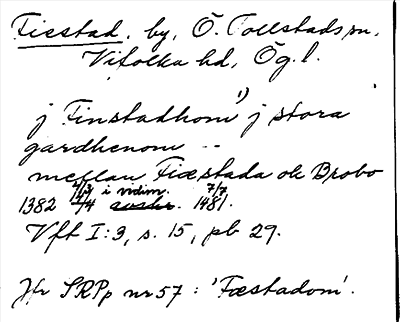 Fiestad. by, Ö. Tollstads sn,
Vifolka hd, Ög. l.
j Finstadhom¹⁾ j stora
gardhenom --
mellan Fiæstada ok Brobo
1382 4/3 4/4 i vidim. avskr. 7/7 1481.
Vft I:3, s. 15, pb 29.
Jfr SRPp nr 57 : 'Fæstadom'.